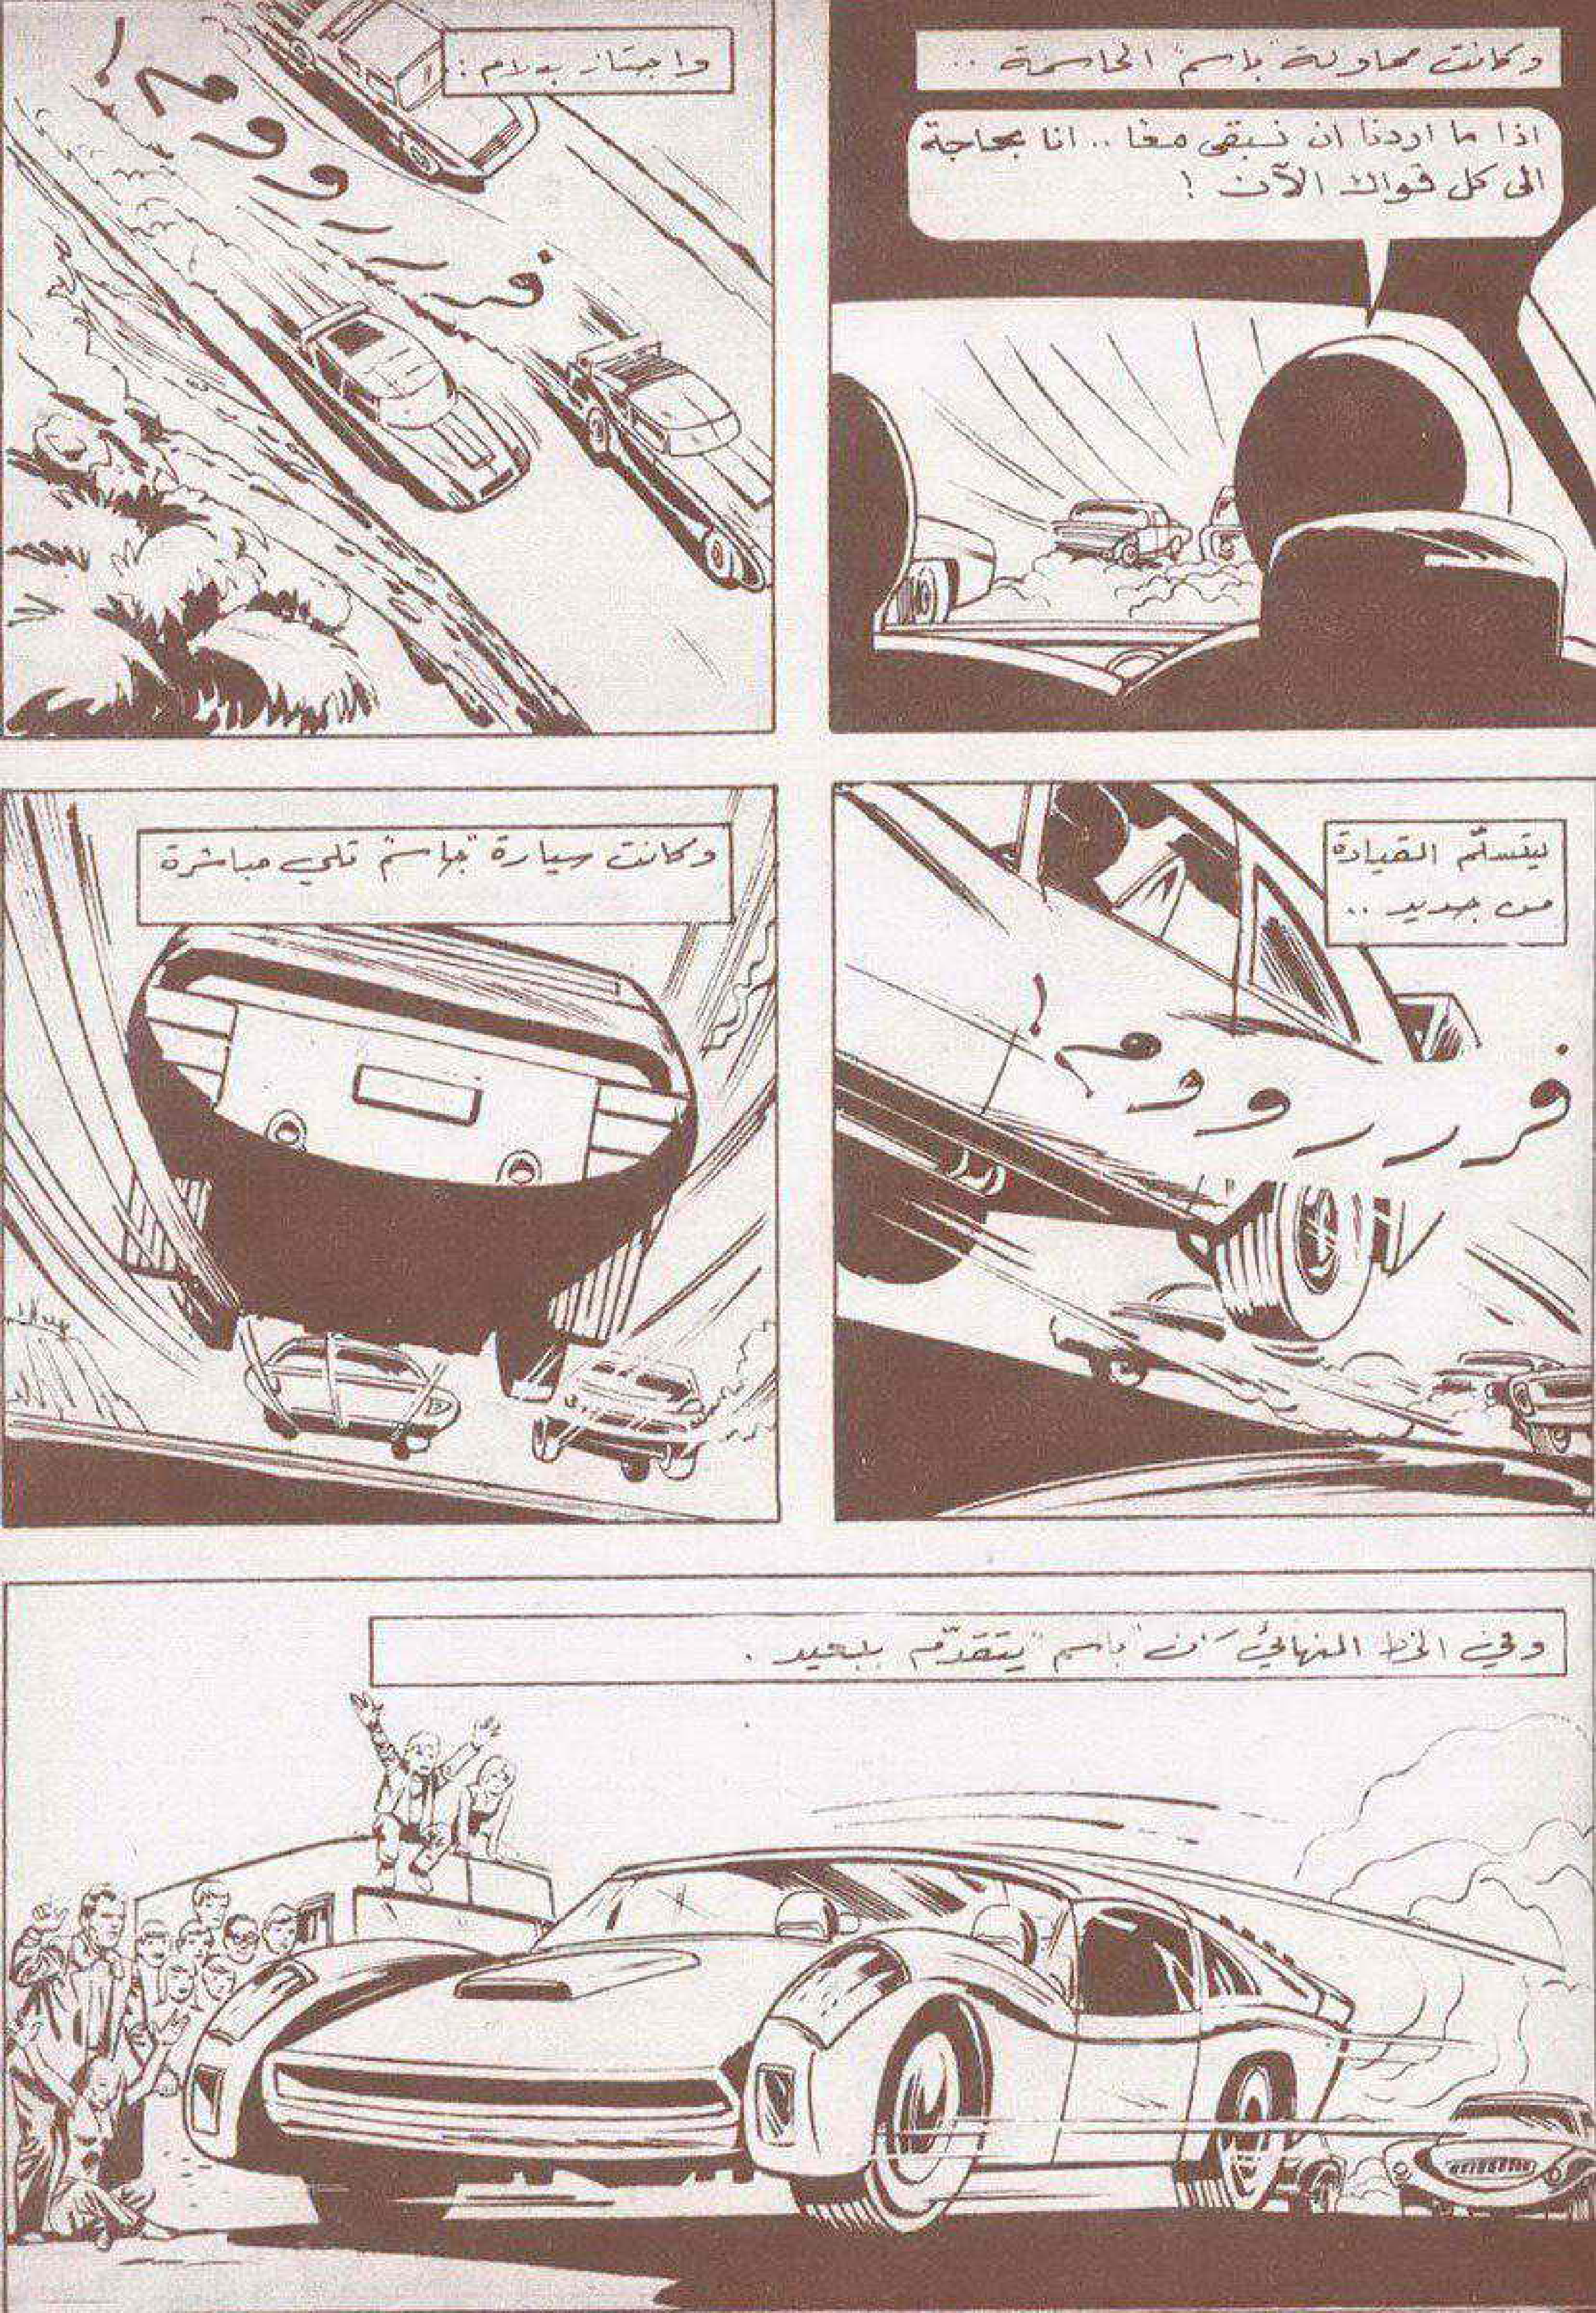 وكانت محاولة "باسم" الحاسمة ..
اذا ما اردنا ان نبقى معا .. انا بحاجة
الى كل قواك الآن !
واجتاز بسلام :
فررووم !
ليتسلّم القيادة
من جديد ..
فرررووم !
وكانت سيارة "جاسم" تلي مباشرة
وفي الخط النهائي كان "باسم" يتقدّم ببعيد .